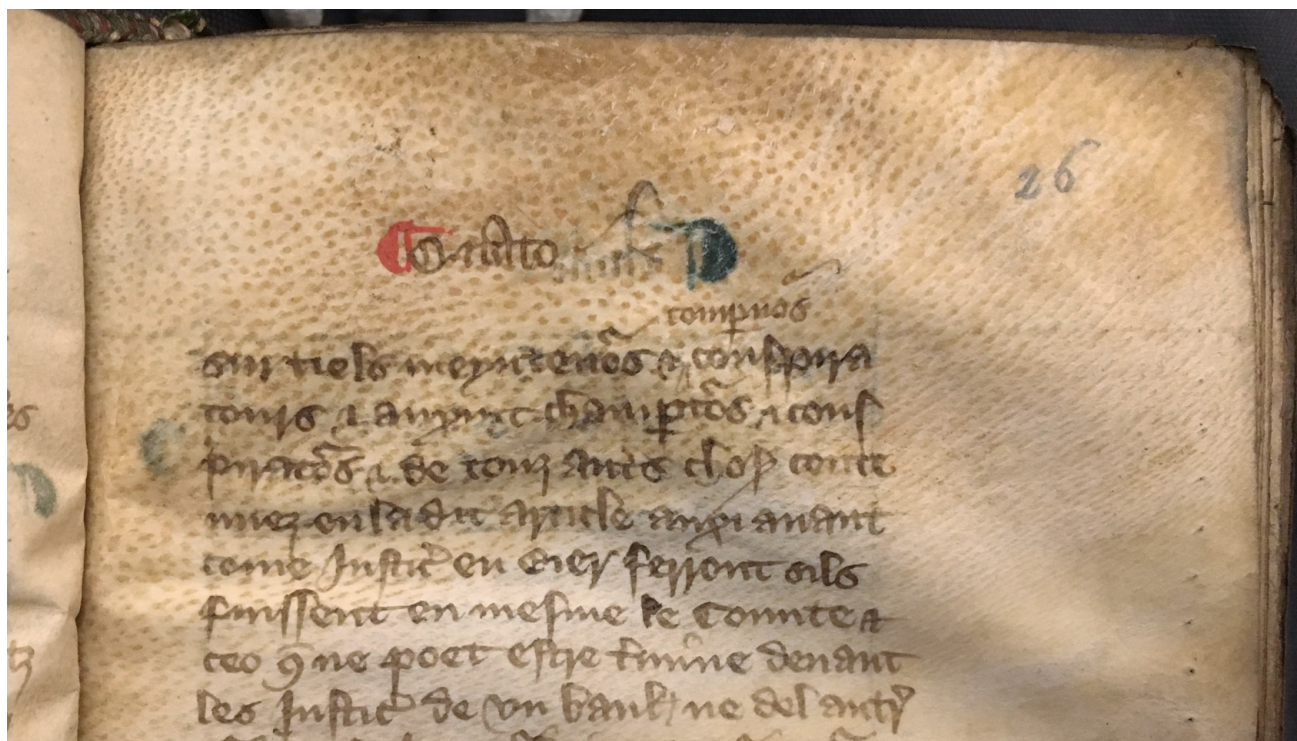 26
sur tiels meyntenõs & conspira
tours & auxint champtõs & cons
piratõs & de touz autˀs chosˀ conte
nuez en la dit article auxi auant
come Justicˀ en Eier ferront sils
fuissent en mesme le Counte &
ceo qˀ ne poet estre tˀmine deuant
les Justicˀ de vn bank ne del autrˀ